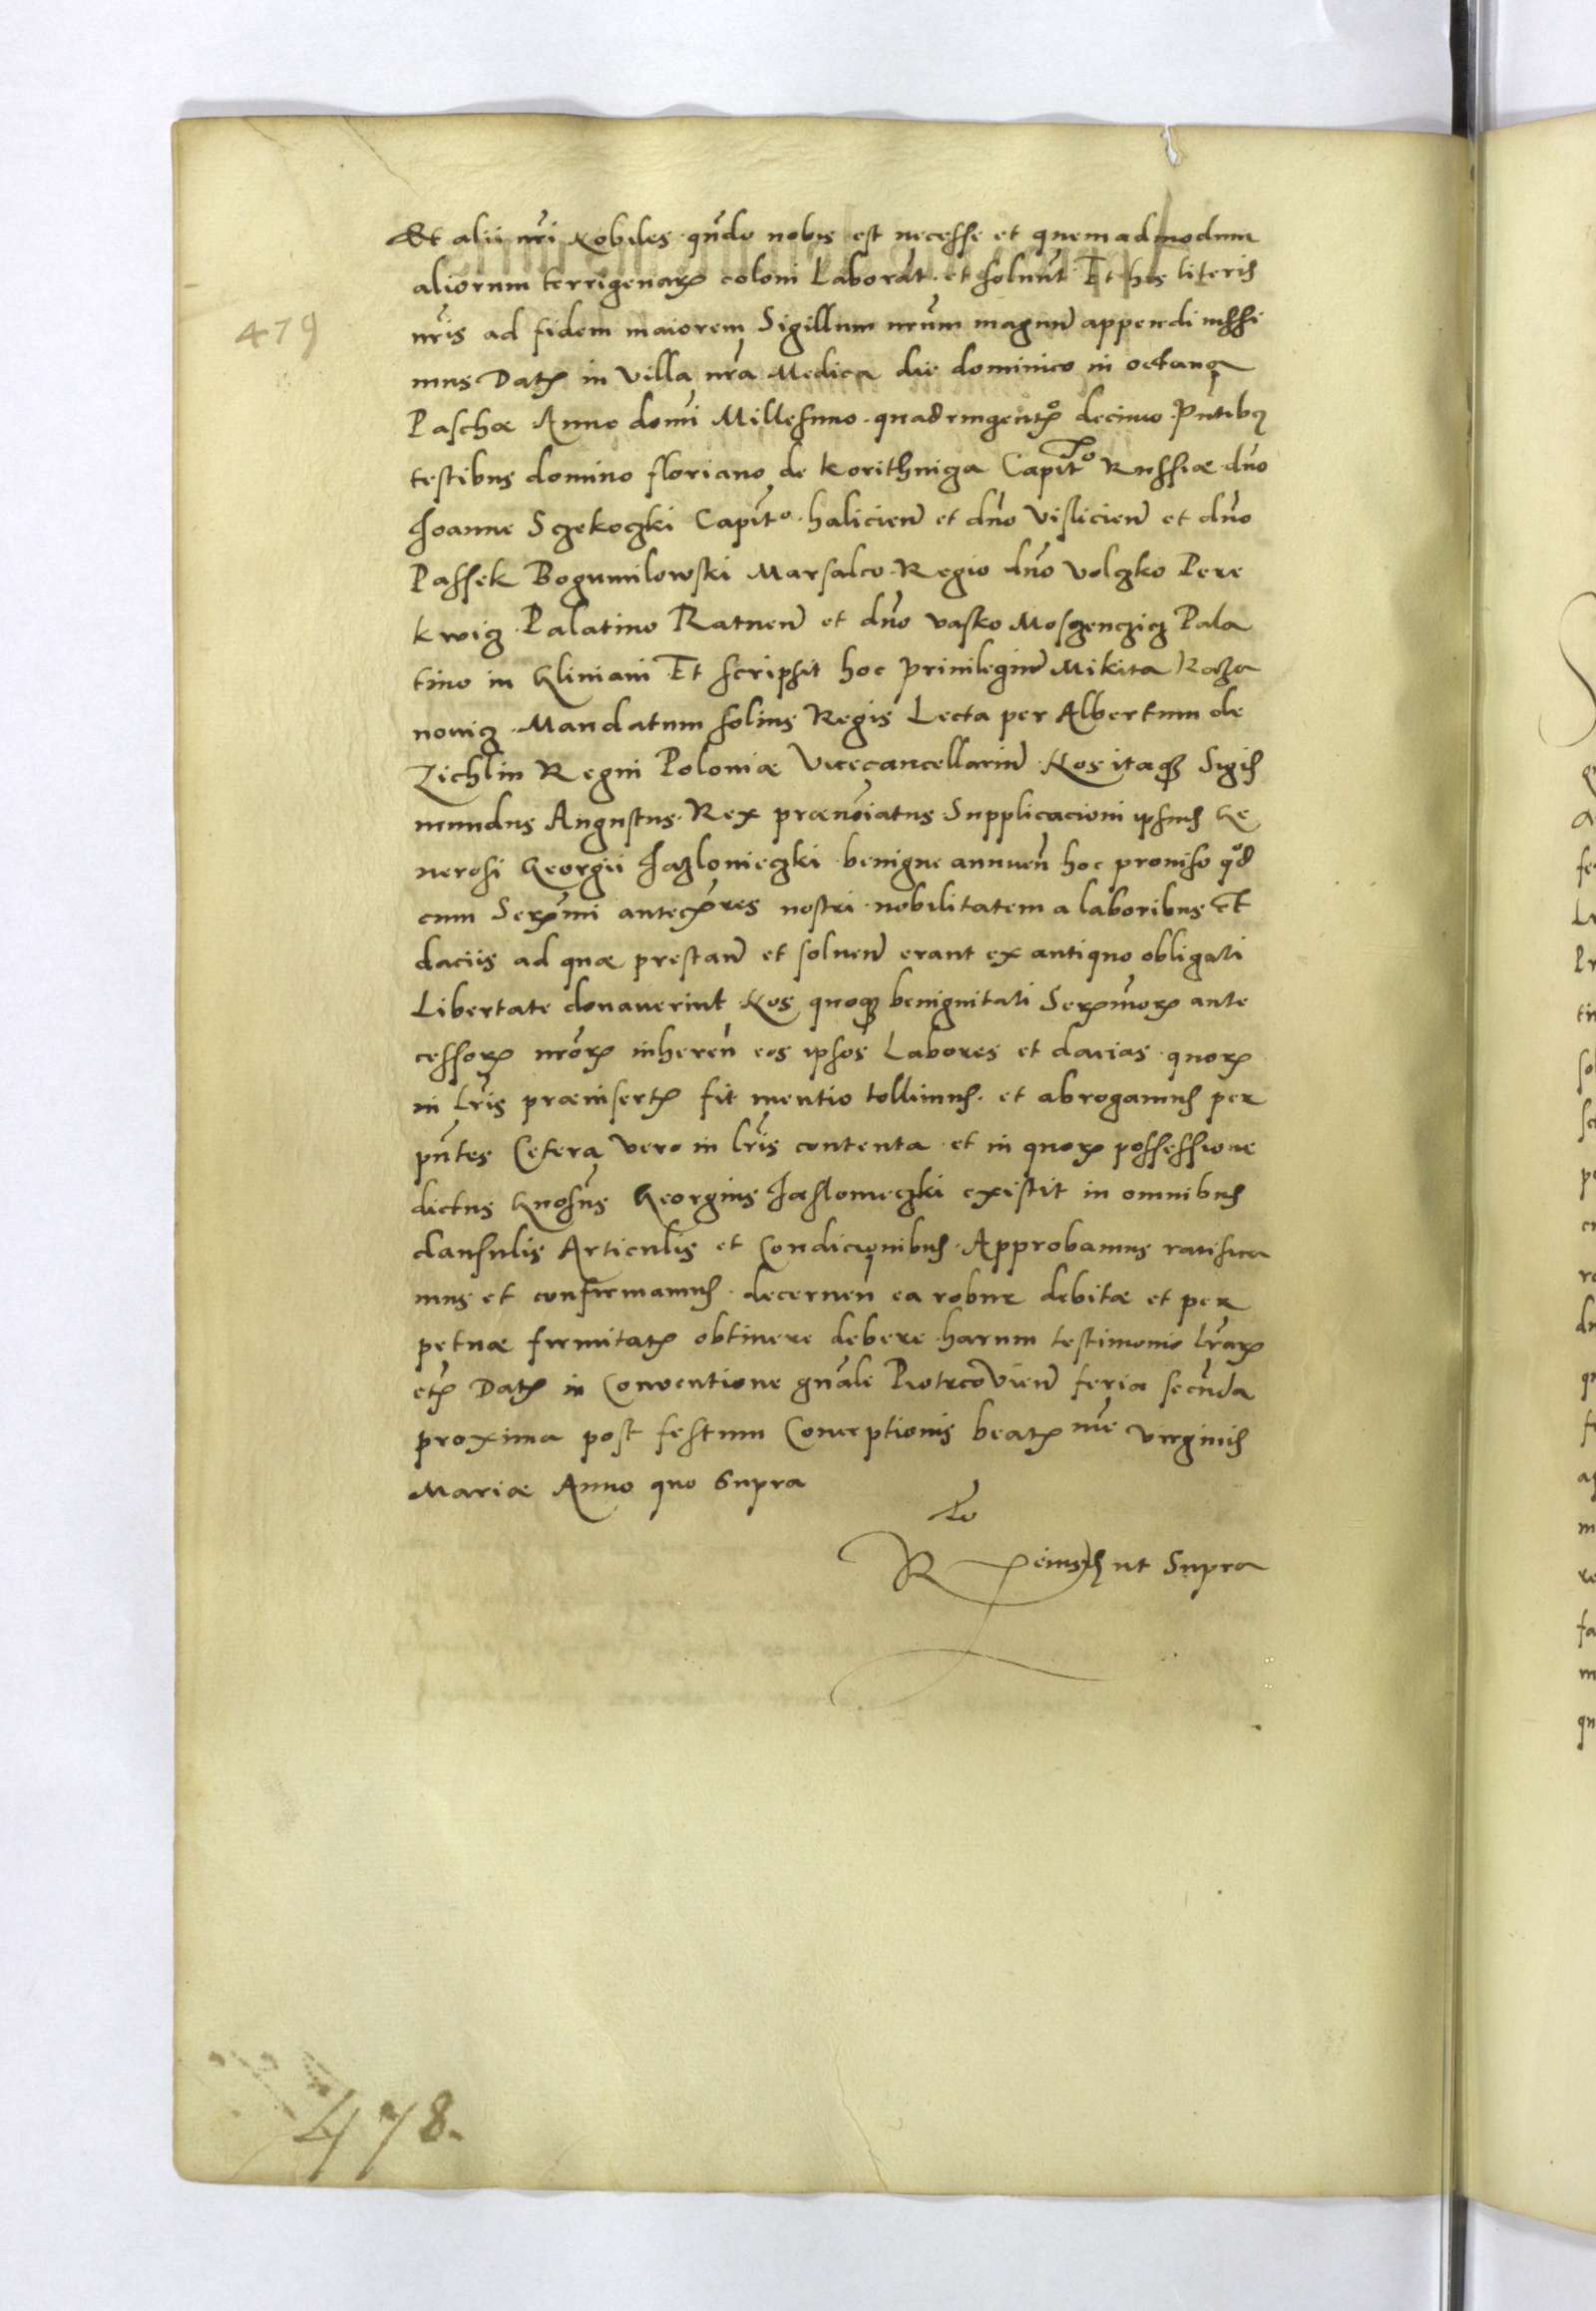 Et alii nr̃i Nobiles qñdo nobis est necesse et quemadmodum
aliorum terrigenarꝝ coloni Laborãt et solvũt Et his literis
479
nr̃is ad fidem maiorem Sigillum nr̃um magnũ appendi iussi
mus Datꝝ in villa nr̃a Medica die dominico in octava
Paschæ Anno domĩ Millesimo quadringentꝝo decimo Pñtibꝫ
testibus domino floriano de Korithniga Capitõ Russiæ dño
Joanne Sczekoczki Capitº halicieñ et dño visliciеñ et dño
Passek Bogumilowski Marsalco Regio dño volczko Pere
kwicz Palatino Ratneñ et dño vasko Moszenczicz Pala
tino in Gliniani Et scripsit hoc privilegiũ Mikita Kaza
novicz Mandatum solius Regis Lecta per Albertum de
Zichlin Regni Poloniæ Vicecancellariũ Nos itaqꝫ Sigis
mundus Augustus Rex prænõiatus Supplicacioni ipsius Ge
nerosi Georgii Jazlonieczki benigne annueñ hoc proviso qᵒd
cum Serꝝmi antecẽres nostri nobilitatem a laboribus Et
daciis ad quæ prestañ et solveñ erant ex antiquo obligati
Libertate donaverint Nos quoqꝫ benignitati Serꝝmorꝝ ante
cessorꝝ nr̃orꝝ inhereñ eos ipsos Labores et dacias quorꝝ
in lr̃is præinsertꝝ fit mentio tollimus et abrogamus per
pñtes Cetera vero in lr̃is contenta et in quorꝝ possessione
dictus Gñosus Georgius Jaslomeczki existit in omnibus
clausulis Articulis et Condicionibus Approbamus ratifica
mus et confirmamus decerneñ ea robur debitæ et per
petuæ firmitatꝝ obtinere debere harum testimonio lr̃arꝝ
etꝝ Datꝝ in Conventione gñale Piotrcovieñ feria secũda
proxima post festum Conceptionis beatꝝme virginis
Mariæ Anno quo Supra
Rº eiusdem ut Supra
478.